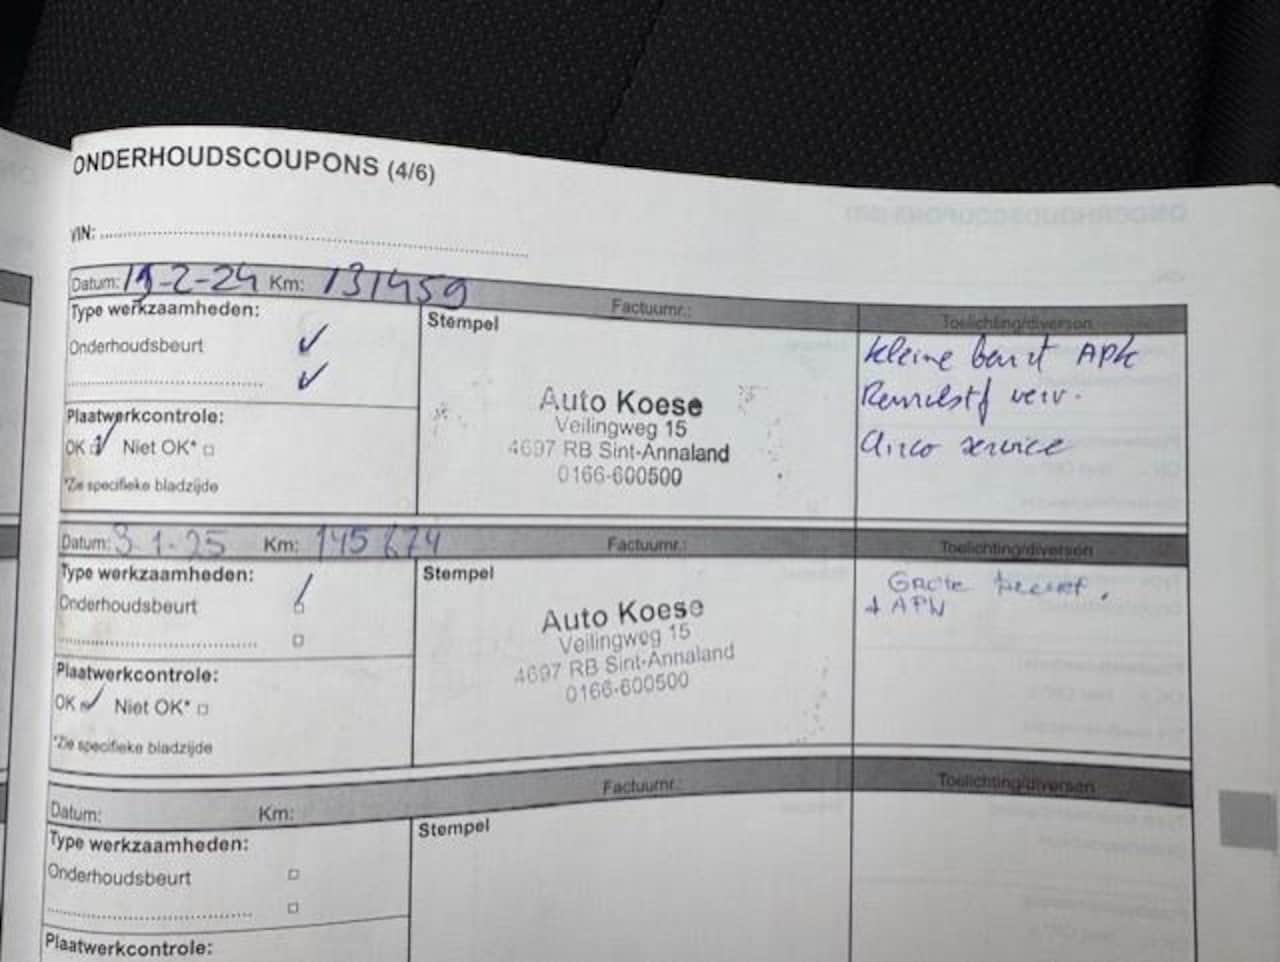 ONDERHOUDSCOUPONS (4/6)
VIN:
Datum: 19-2-24 Km: 131459 Factuurnr.: Toelichting/diversen
Type werkzaamheden:
Onderhoudsbeurt
Stempel
Auto Koese
Veilingweg 15
4697 RB Sint-Annaland
0166-600500
kleine beurt APK
Remvlstf verv.
Airco service
Plaatwerkcontrole:
OK Niet OK*
*Zie specifieke bladzijde
Datum: 3-1-25 Km: 145674 Factuurnr.: Toelichting/diversen
Type werkzaamheden:
Onderhoudsbeurt
Stempel
Auto Koese
Veilingweg 15
4697 RB Sint-Annaland
0166-600500
Grote beurt.
+ APK
Plaatwerkcontrole:
OK Niet OK*
*Zie specifieke bladzijde
Datum: Km: Factuurnr.: Toelichting/diversen
Type werkzaamheden:
Onderhoudsbeurt
Stempel
Plaatwerkcontrole: